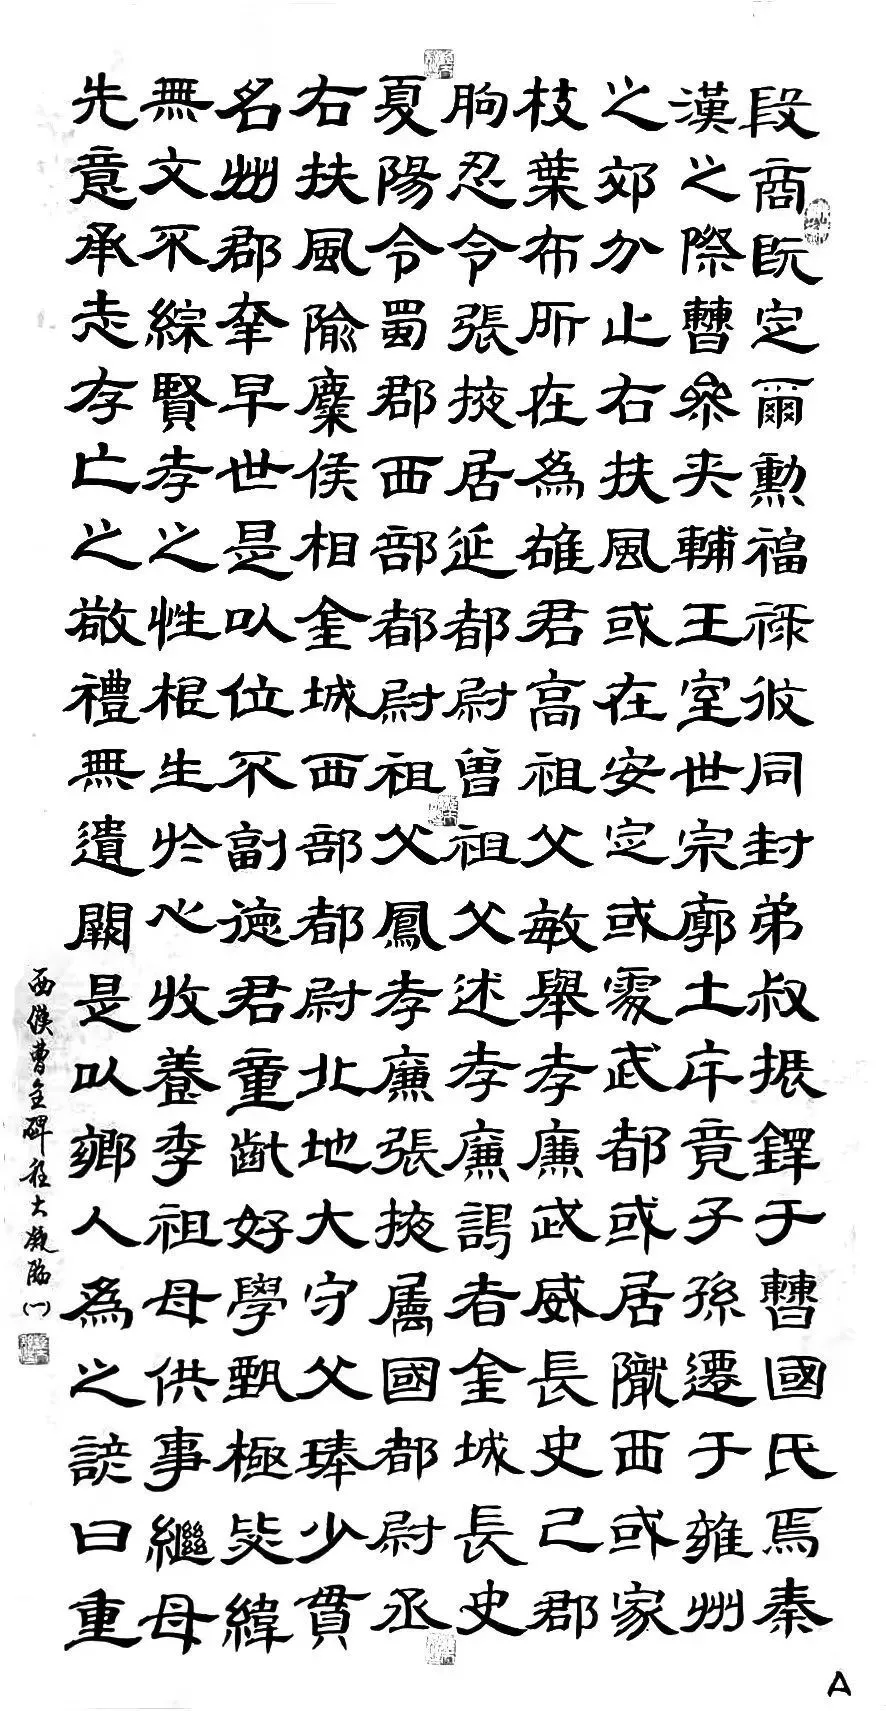 段商既定爾勳福祿攸同封弟叔振鐸于曹國氏焉秦
漢之際曹參夾輔王室世宗廓土斥竟子孫遷于雍州
之郊分止右扶風或在安定或處武都或居隴西或家
枝葉布所在為雄君高祖父敏舉孝廉武威長史巴郡
朐忍令張掖居延都尉曾祖父述孝廉謁者金城長史
夏陽令蜀郡西部都尉祖父鳳孝廉張掖屬國都尉丞
右扶風隃麋侯相金城西部都尉北地大守父琫少貫
名州郡幸早世是以位不副德君童齔好學甄極毖緯
無文不綜賢孝之性根生於心收養季祖母供事繼母
先意承志存亡之敬禮無遺闕是以鄉人為之諺曰重
西漢曹全碑程大凝臨
A